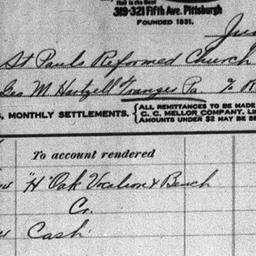 that is the Best
319-321 Fifth Ave. Pittsburgh
FOUNDED 1831.
St Pauls Reformed Church
Geo M. Hartzell Granges Pa
MONTHLY SETTLEMENTS.
ALL REMITTANCES TO BE MADE
C. C. MELLOR COMPANY, LI
AMOUNTS UNDER $2 MAY BE SE
To account rendered
"H" Oak Vocalion & Bench
Cr.
Cash